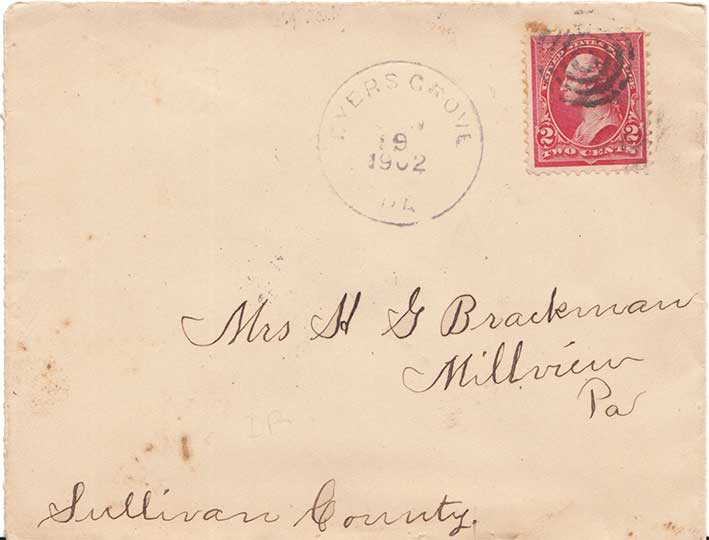 GROVE
19
1902
UNITED STATES
2 2
TWO CENTS
Mrs H G Brackman
Millview
Pa
Sullivan County.